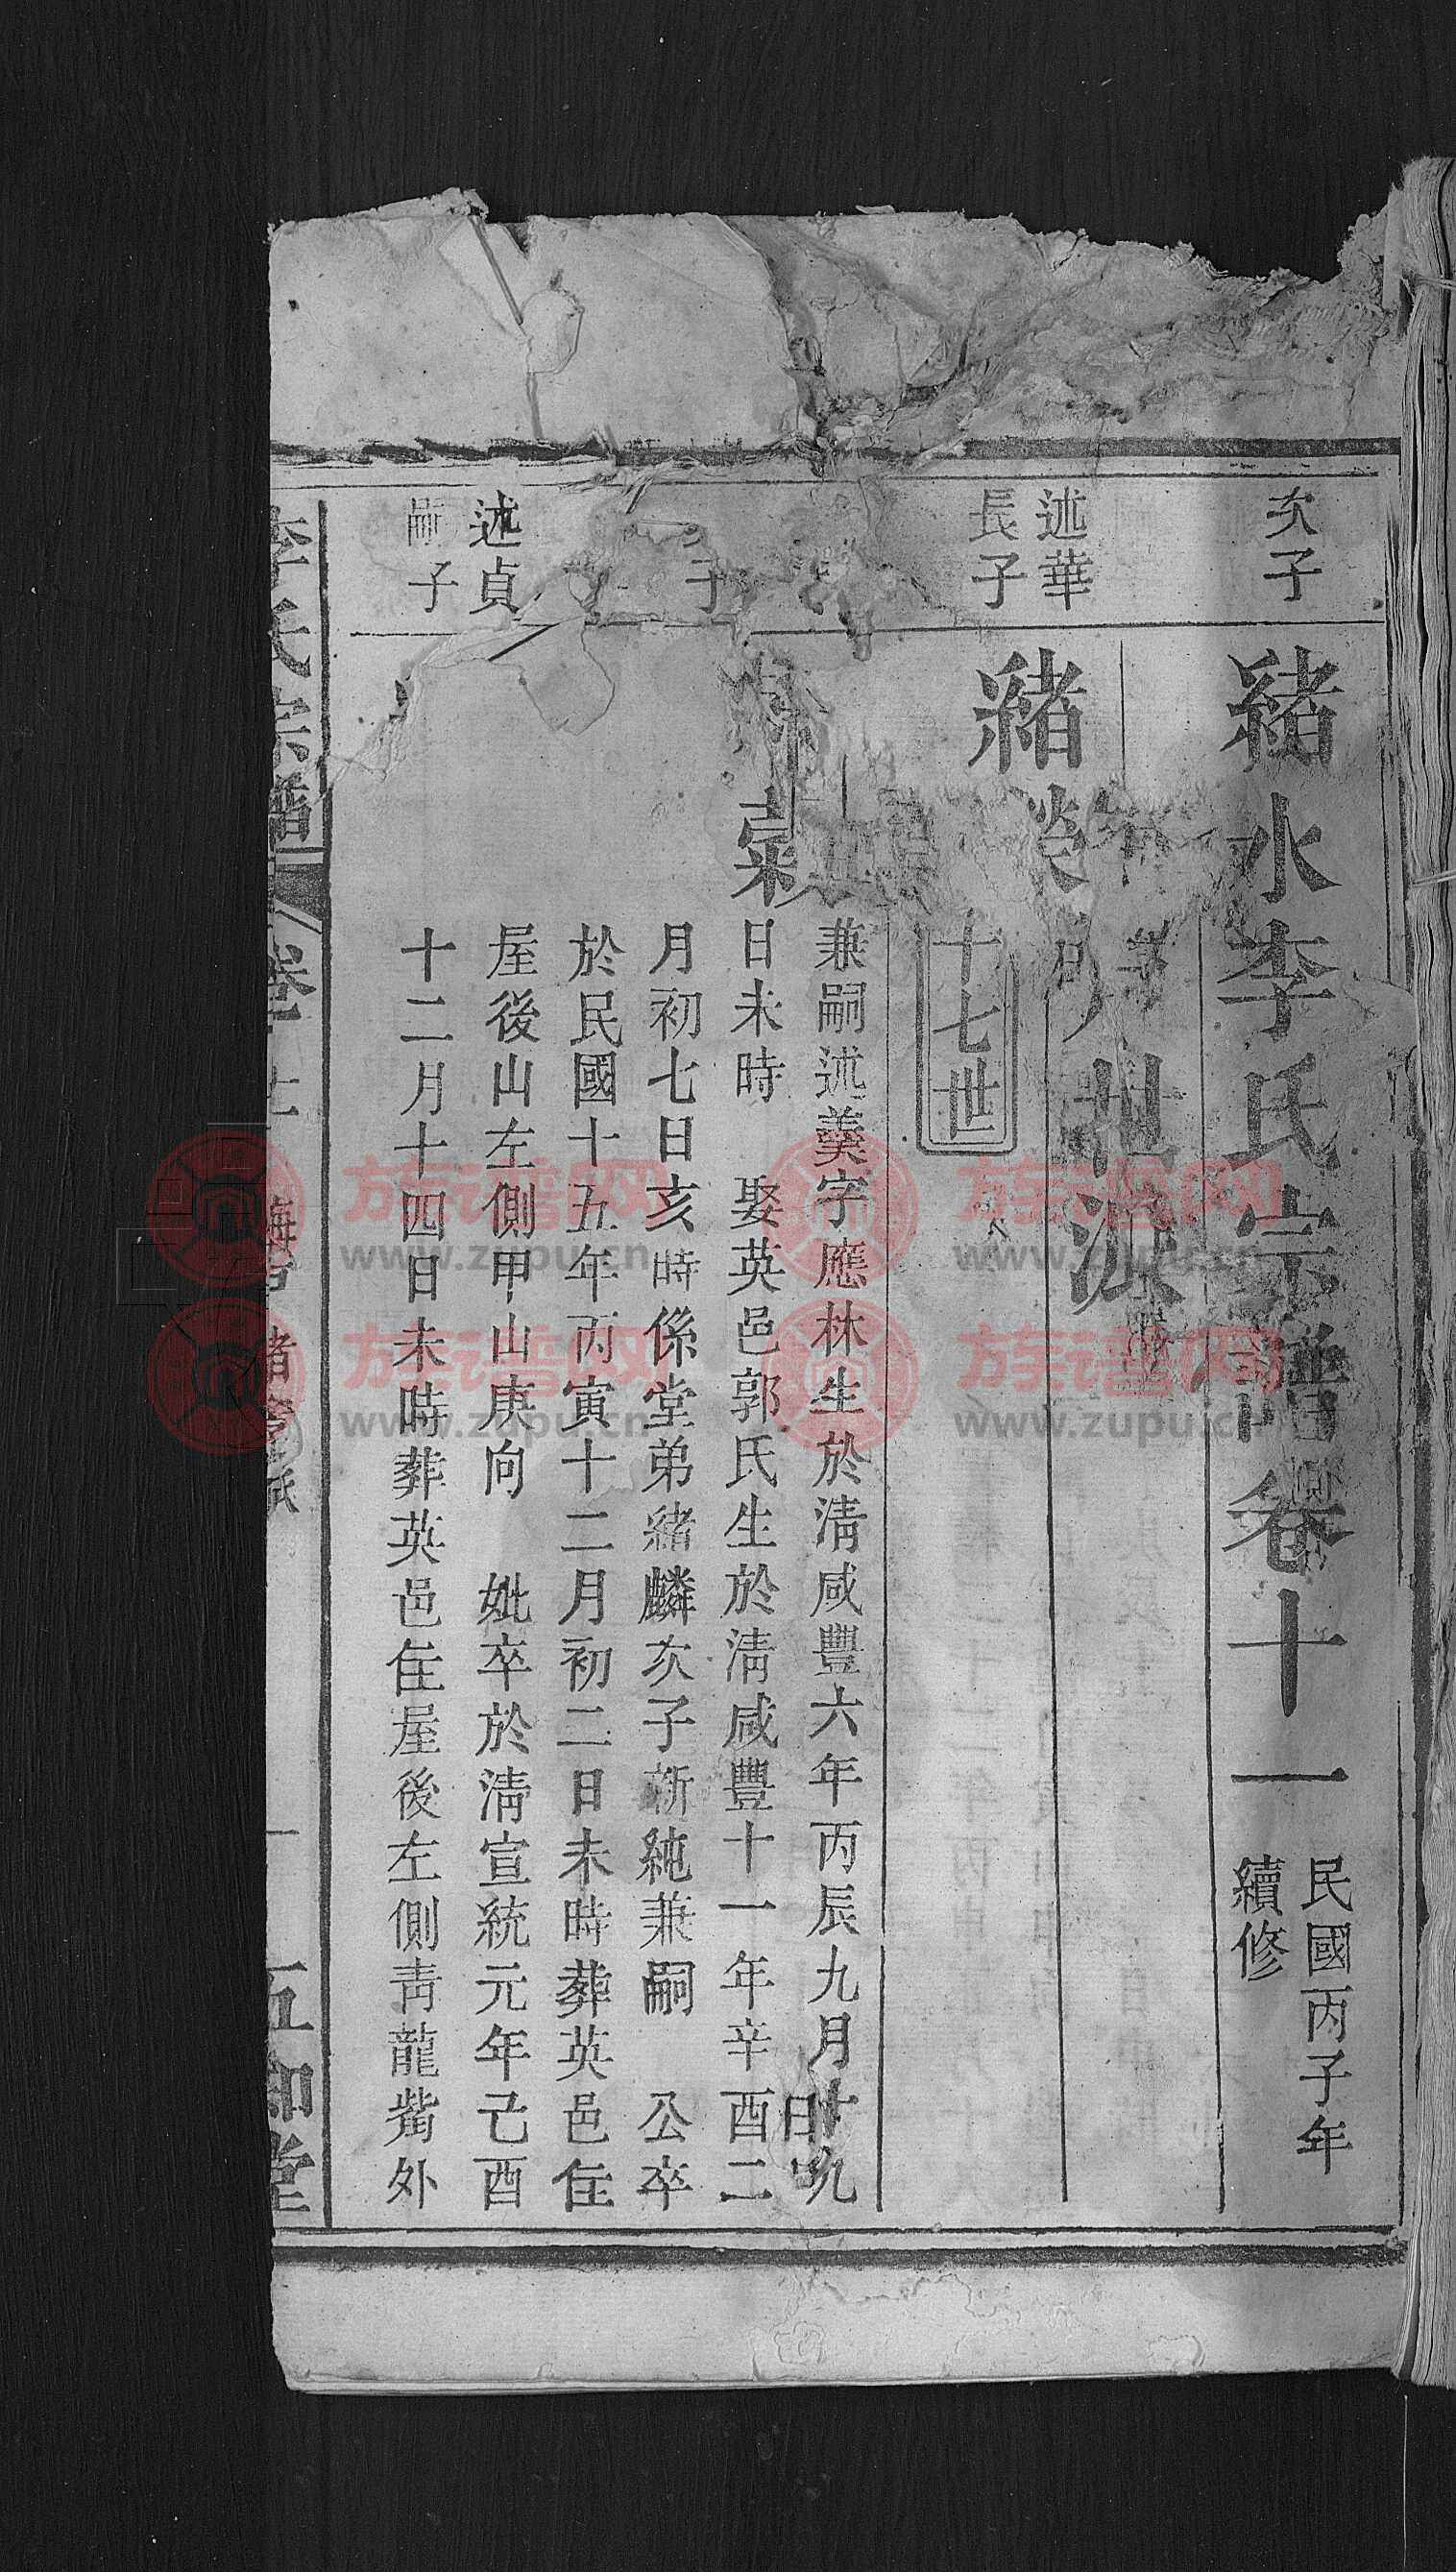 緒水李氏宗譜卷十一
民國丙子年
續修
世源
十七世
次子
述華
長子
子
述貞
嗣子
緒
兼嗣述羹字應林生於淸咸豐六年丙辰九月十九
日未時 娶英邑郭氏生於淸咸豐十一年辛酉二
月初七日亥時係堂弟緒麟次子新純兼嗣 公卒
於民國十五年丙寅十二月初二日未時葬英邑住
屋後山左側甲山庚向 妣卒於淸宣統元年己酉
十二月十四日未時葬英邑住屋後左側靑龍嘴外
李氏宗譜
卷十
五知堂
族谱网
www.zupu.cn
族谱网
www.zupu.cn
族谱网
www.zupu.cn
族谱网
www.zupu.cn